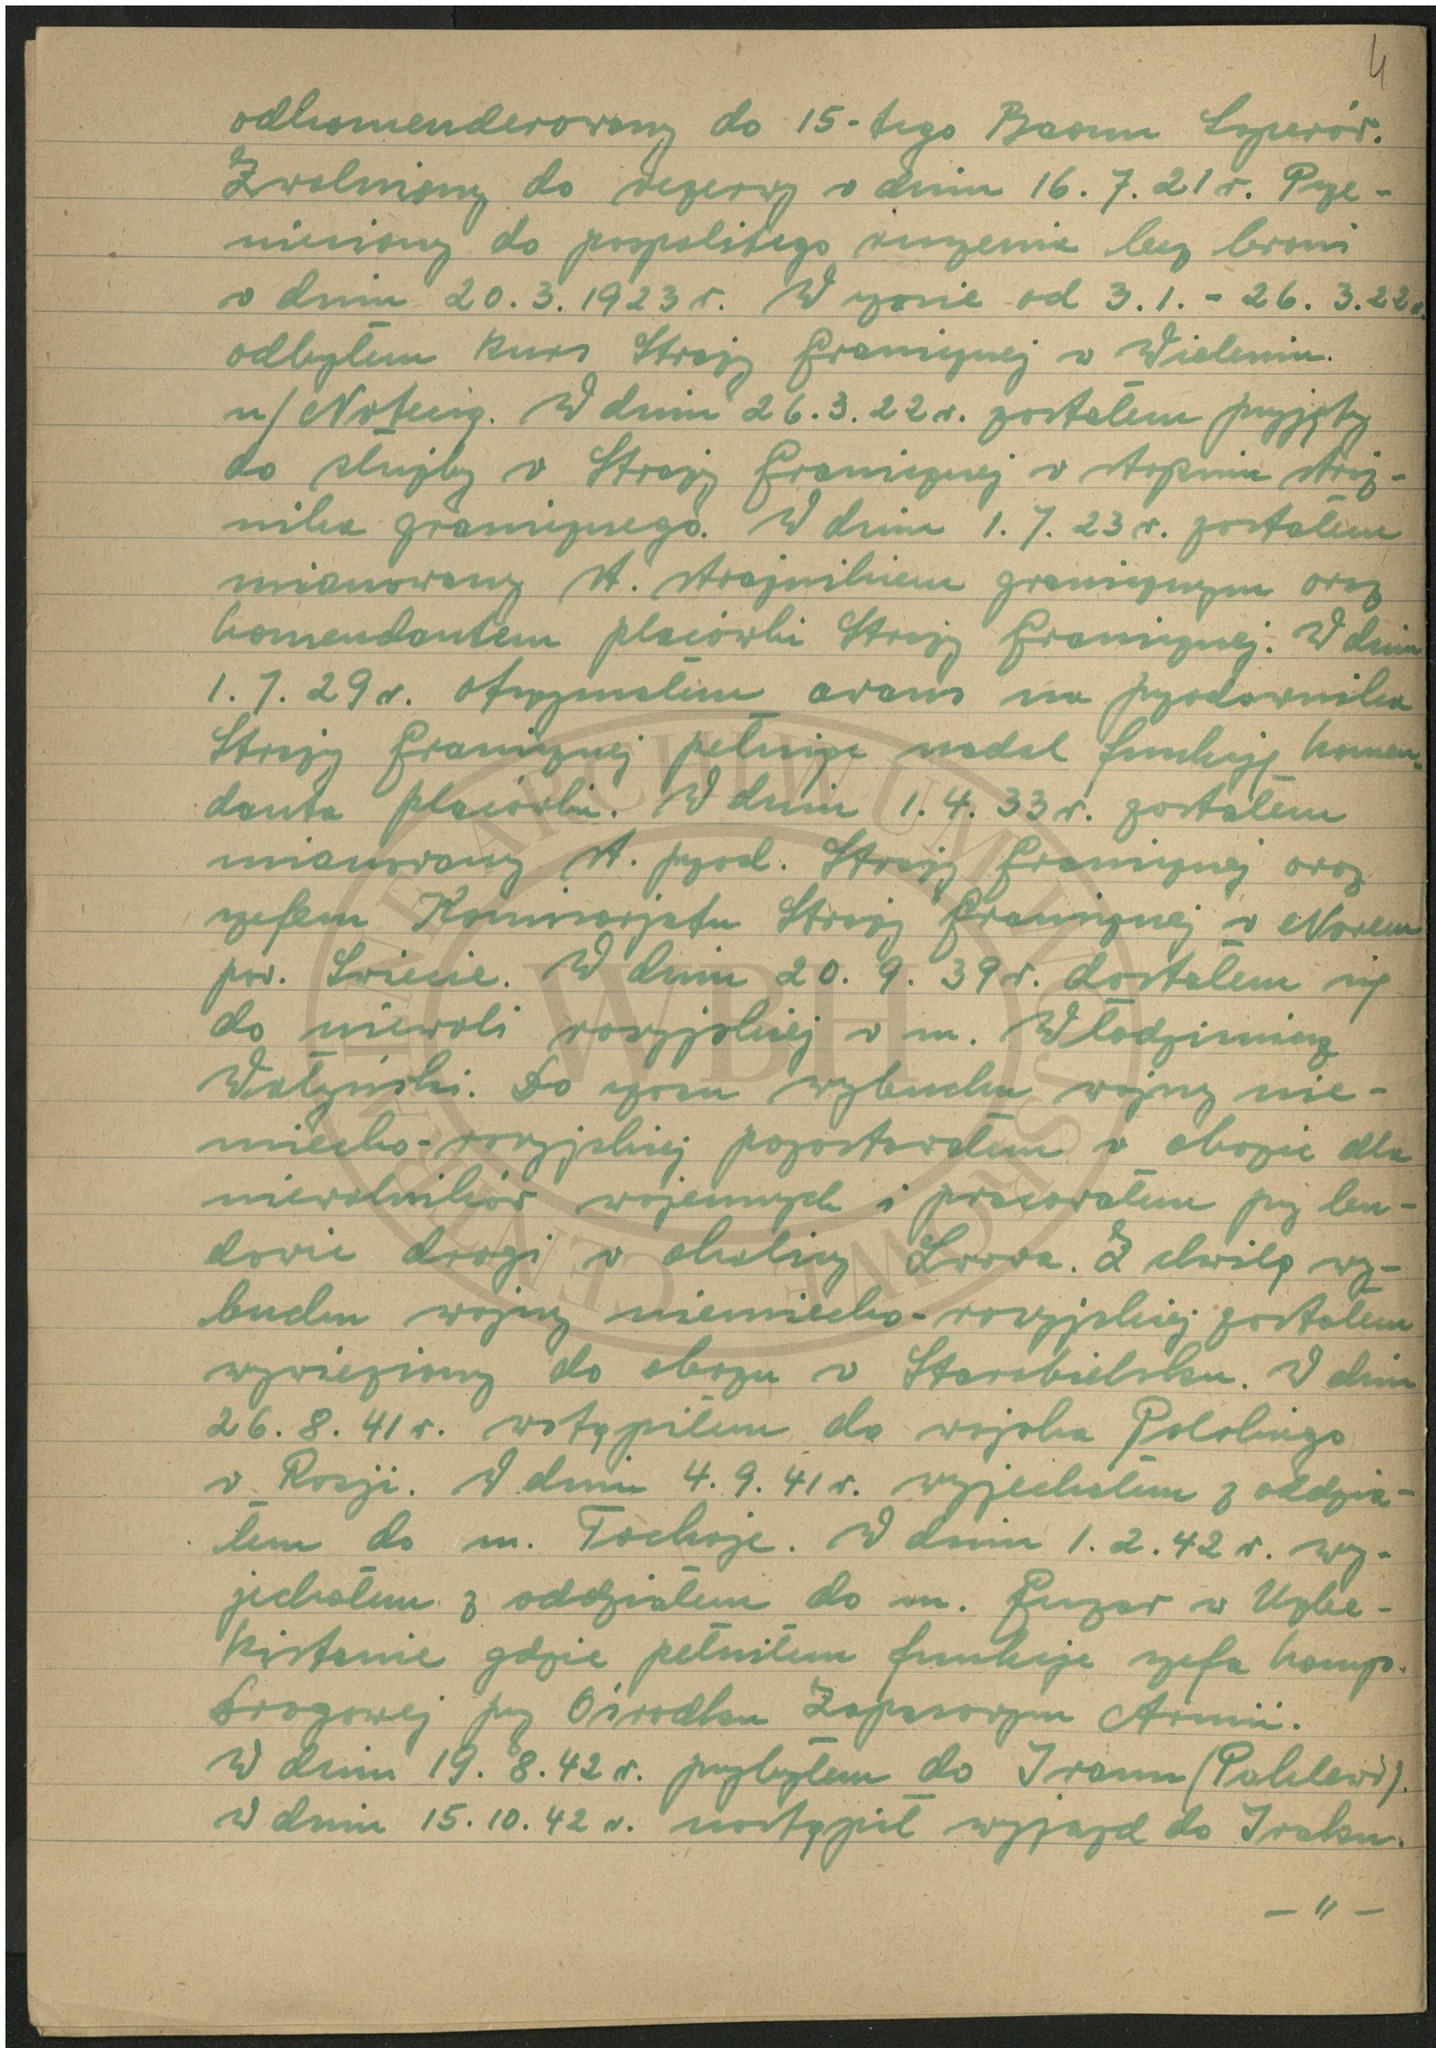 4
odkomenderowany do 15-tego Baonu Saperów.
Zwolniony do rezerwy w dniu 16.7.21r. Prze-
niesiony do pospolitego ruszenia bez broni
w dniu 20.3.1923r. W czasie od 3.1. - 26.3.22r.
odbyłem kurs Straży Granicznej w Wieleniu
n/Notecią. W dniu 26.3.22r. zostałem przyjęty
do służby w Straży Granicznej w stopniu straż-
nika granicznego. W dniu 1.7.23r. zostałem
mianowany st. strażnikiem granicznym oraz
komendantem placówki Straży Granicznej. W dniu
1.7.29r. otrzymałem awans na przodownika
Straży Granicznej pełniąc nadal funkcję komen-
danta placówki. W dniu 1.4.33r. zostałem
mianowany st. przod. Straży Granicznej oraz
szefem Komisarjatu Straży Granicznej w Nowem
pow. Świecie. W dniu 20.9.39r. dostałem się
do niewoli rosyjskiej w m. Włodzimierz
Wołyński. Do czasu wybuchu wojny nie-
miecko-rosyjskiej pozostawałem w obozie dla
niewolników wojennych i pracowałem przy bu-
dowie drogi w okolicy Lwowa. Z chwilą wy-
buchu wojny niemiecko-rosyjskiej zostałem
wywieziony do obozu w Starobielsku. W dniu
26.8.41r. wstąpiłem do wojska Polskiego
w Rosji. W dniu 4.9.41r. wyjechałem z oddzia-
łem do m. Tockoje. W dniu 1.2.42r. wy-
jechałem z oddziałem do m. Guzar w Uzbe-
kistanie gdzie pełniłem funkcje szefa komp.
Drogowej przy Ośrodku Zapasowym Armii.
W dniu 19.8.42r. przybyłem do Iranu (Pahlewi).
W dniu 15.10.42r. nastąpił wyjazd do Iraku.
- " -
CENTRALNE ARCHIWUM WOJSKOWE
WBH